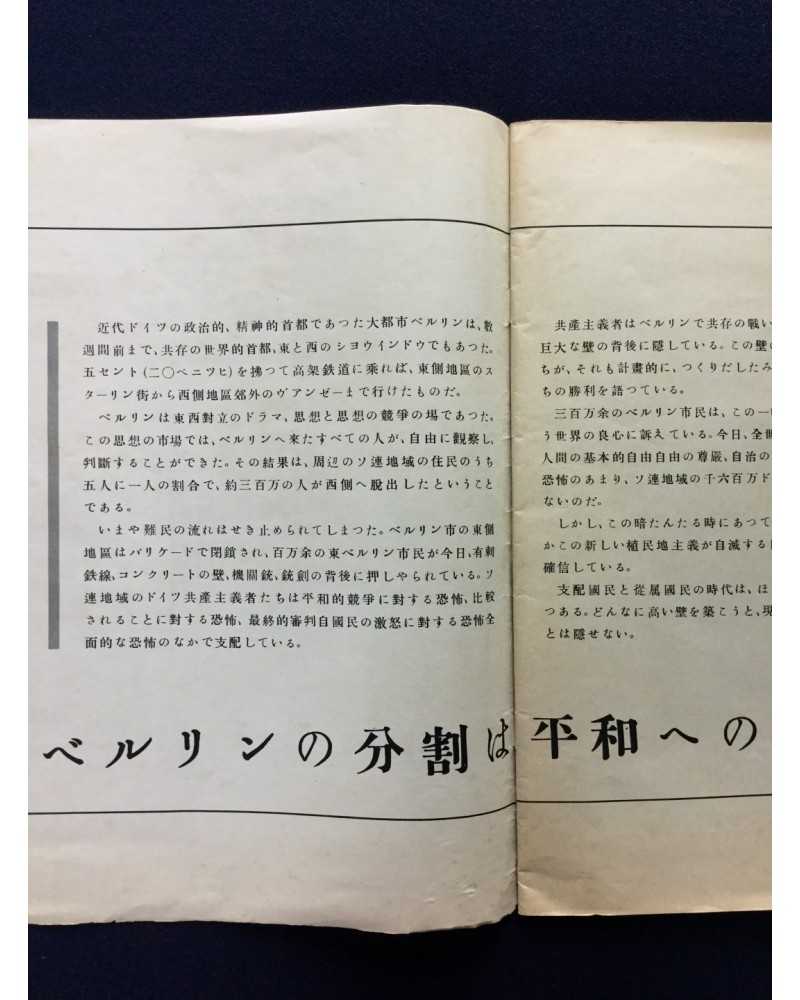 近代ドイツの政治的、精神的首都であつた大都市ベルリンは、數
週間前まで、共存の世界的首都、東と西のシヨウインドウでもあつた。
五セント(二〇ペニツヒ)を拂つて高架鉄道に乘れば、東側地區のス
ターリン街から西側地區郊外のヴアンゼーまで行けたものだ。
ベルリンは東西對立のドラマ、思想と思想の競爭の場であつた。
この思想の市場では、ベルリンへ來たすべての人が、自由に觀察し、
判斷することができた。その結果は、周辺のソ連地域の住民のうち
五人に一人の割合で、約三百万の人が西側へ脫出したということ
である。
いまや難民の流れはせき止められてしまつた。ベルリン市の東側
地區はバリケードで閉鎖され、百万余の東ベルリン市民が今日、有刺
鉄線、コンクリートの壁、機關銃、銃劍の背後に押しやられている。ソ
連地域のドイツ共產主義者たちは平和的競爭に對する恐怖、比較
されることに對する恐怖、最終的審判自國民の激怒に對する恐怖全
面的な恐怖のなかで支配している。
共產主義者はベルリンで共存の戰い
巨大な壁の背後に隱している。この壁
ちが、それも計畫的に、つくりだしたみ
ちの勝利を語つている。
三百万余のベルリン市民は、この一
う世界の良心に訴えている。今日、全世
人間の基本的自由自由の尊嚴、自治の
恐怖のあまり、ソ連地域の千六百万ド
ないのだ。
しかし、この暗たんたる時にあつて
かこの新しい植民地主義が自滅する
確信している。
支配國民と從属國民の時代は、ほ
つある。どんなに高い壁を築こうと、現
とは隱せない。
ベルリンの分割は平和への